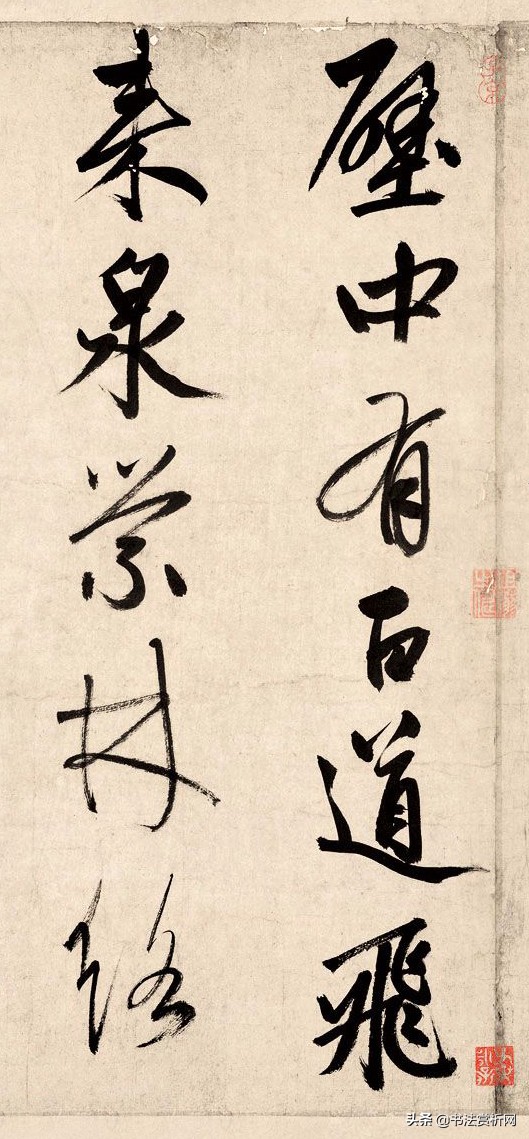 壁中有百道飛
来泉縈林絡
头条 @书法赏析网